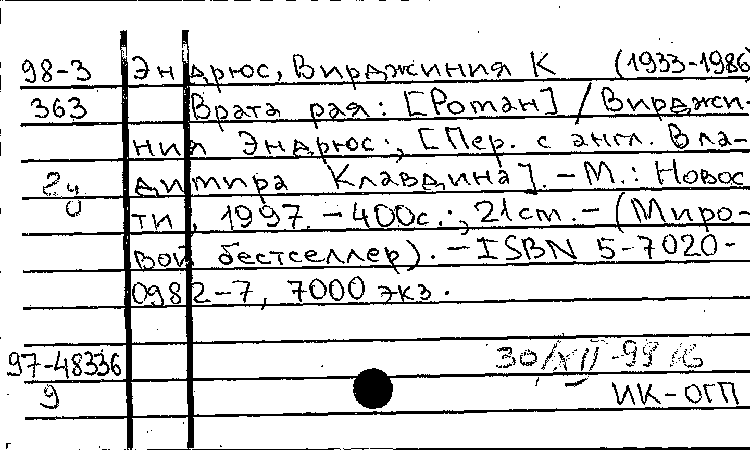 98-3 Эндрюс, Вирджиния К (1933-1986
363 Врата рая: [Роман] / Вирджи-
ния Эндрюс.; [Пер. с англ. Вла-
2ц димира Клавдина]. - М.: Новос
ти, 1997. - 400с.; 21см. - (Миро-
вой бестселлер). - ISBN 5-7020-
0982-7, 7000 экз.
97-48336 30/XII-99
9 ИК-ОГП